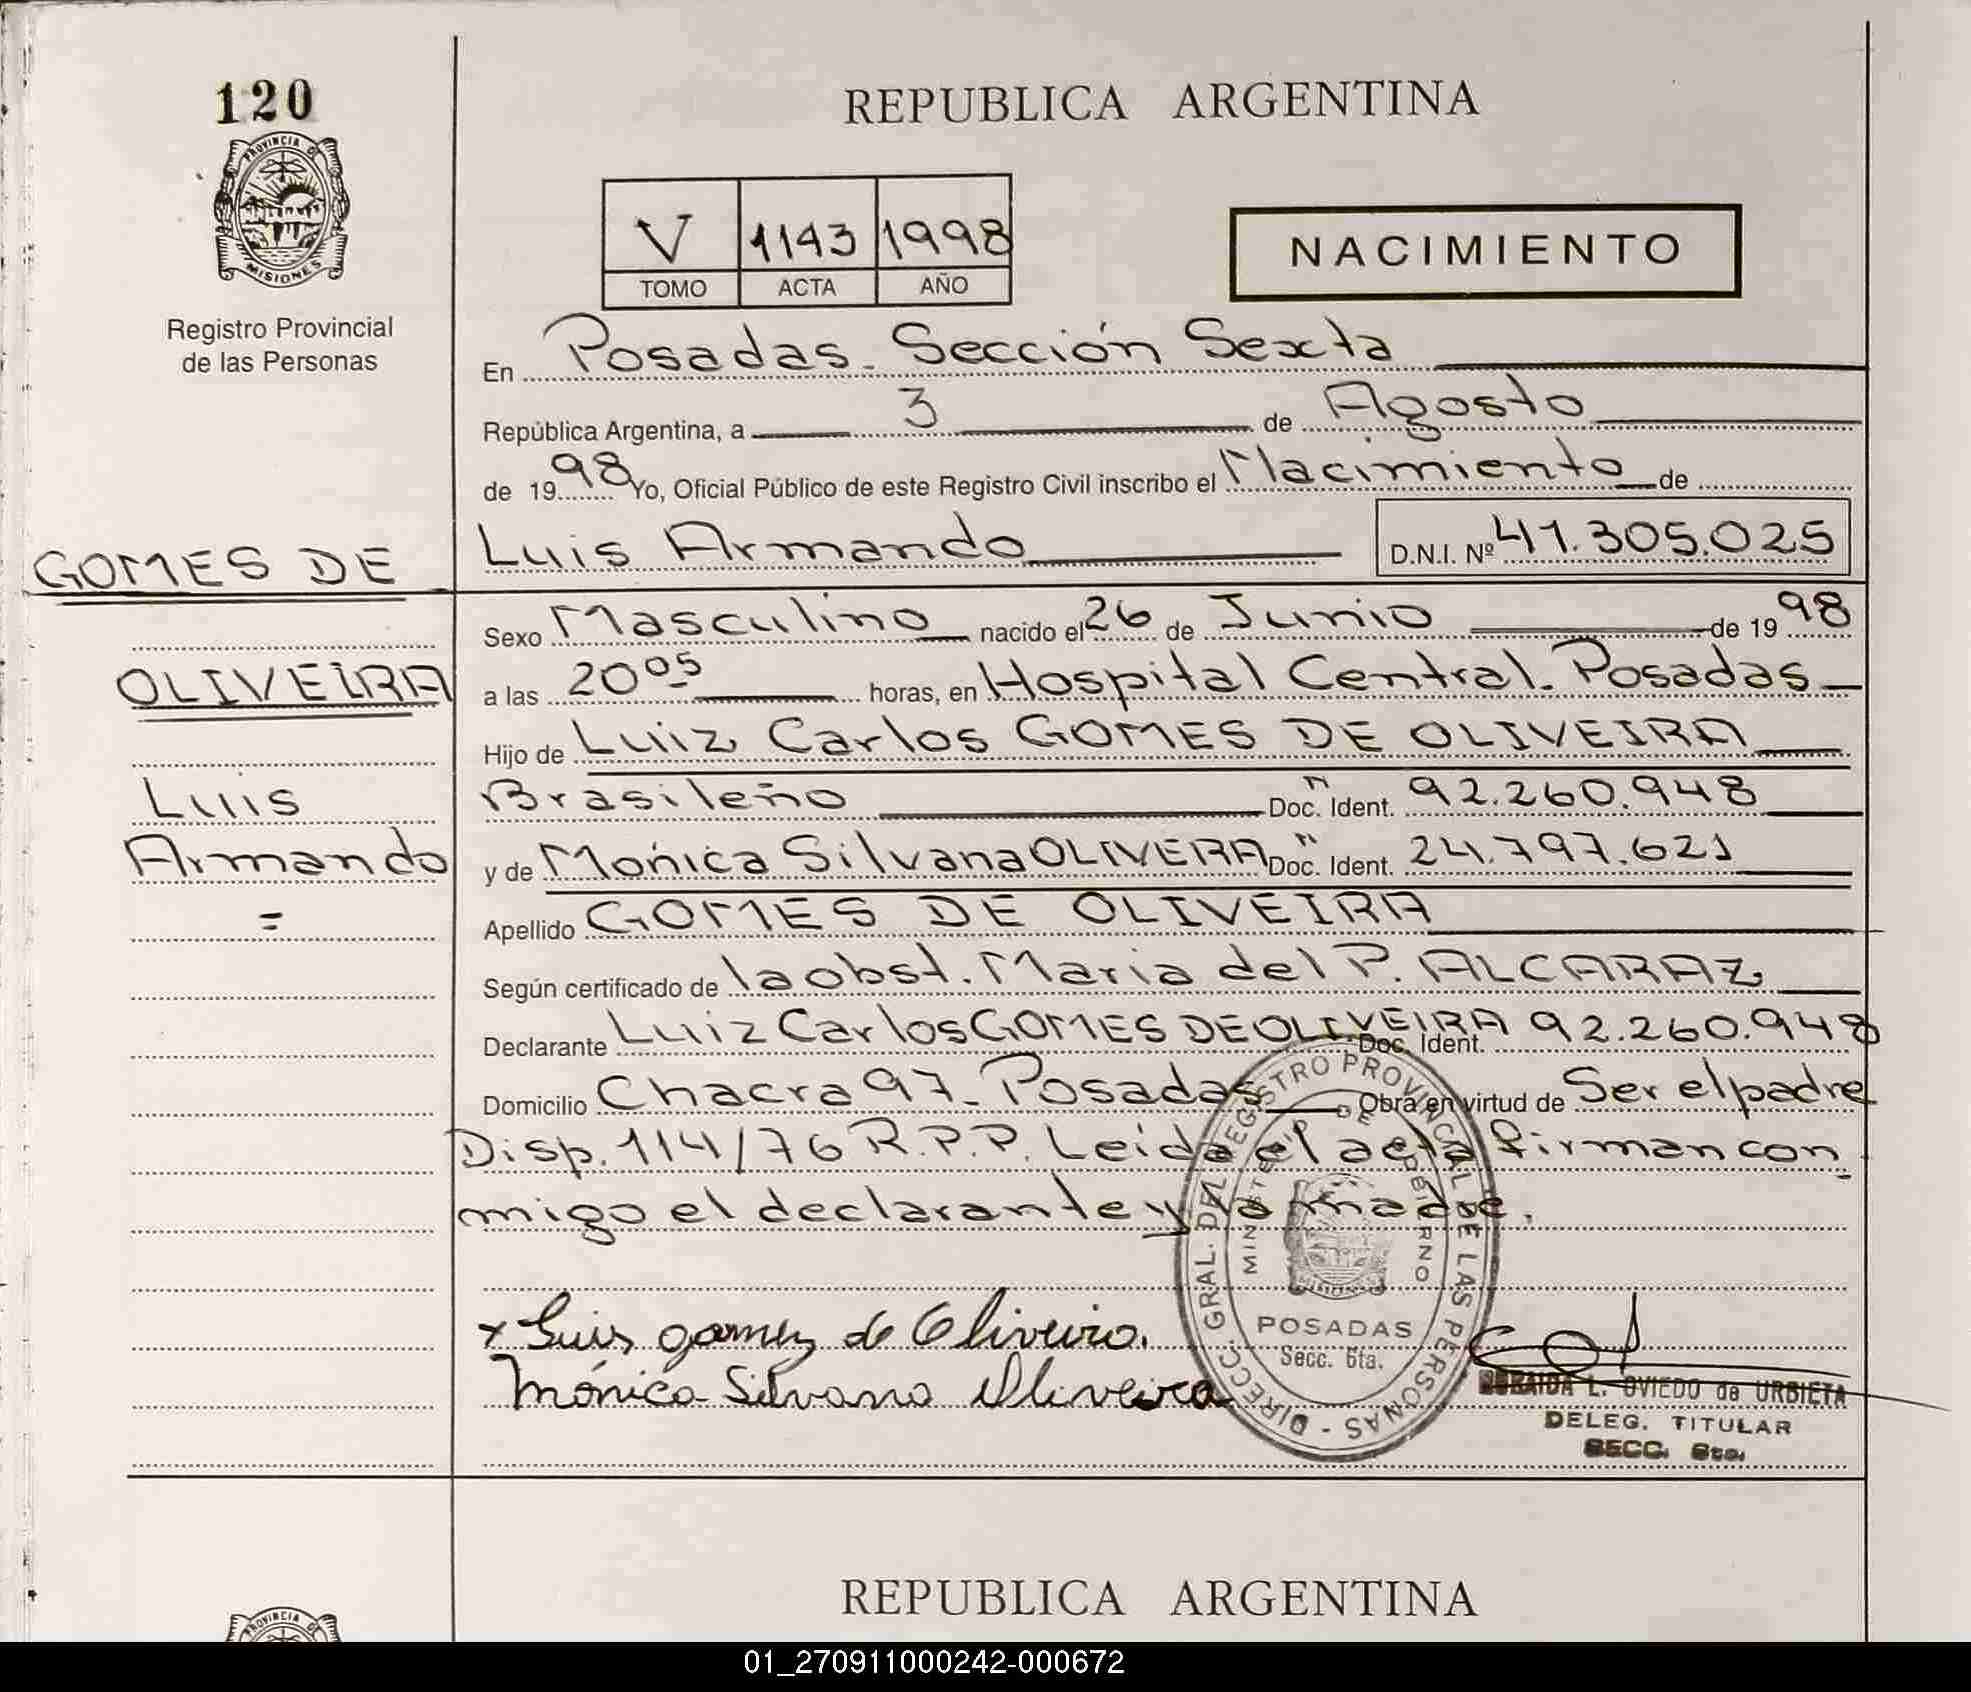 120
PROVINCIA DE
MISIONES
Registro Provincial
de las Personas
REPUBLICA ARGENTINA
V 1143 1998
TOMO ACTA AÑO
NACIMIENTO
En Posadas - Sección Sexta
República Argentina, a 3 de Agosto
de 1998 Yo, Oficial Público de este Registro Civil inscribo el Nacimiento de
Luis Armando D.N.I. Nº 41.305.025
GOMES DE
OLIVEIRA
Luis
Armando
=
Sexo Masculino nacido el 26 de Junio de 1998
a las 20 05 horas, en Hospital Central - Posadas
Hijo de Luiz Carlos GOMES DE OLIVEIRA
Brasileño Doc. Ident. 92.260.948
y de Monica Silvana OLIVERA Doc. Ident. 24.797.621
Apellido GOMES DE OLIVEIRA
Según certificado de la obst. Maria del P. ALCARAZ
Declarante Luiz Carlos GOMES DE OLIVEIRA Doc. Ident. 92.260.948
Domicilio Chacra 97 - Posadas Obra en virtud de Ser el padre
Disp. 114/76 R.P.P. Leida el acta firman con
migo el declarante y la madre.
x Luis gomez de Oliveiro.
Mónica Silvana Oliveira
DIRECC. GRAL. DEL REGISTRO PROVINCIAL DE LAS PERSONAS -
MINISTERIO DE GOBIERNO
POSADAS
Secc. 6ta.
L. OVIEDO de URBIETA
DELEG. TITULAR
SECC. 6ta.
REPUBLICA ARGENTINA
PROVINCIA
01_270911000242-000672